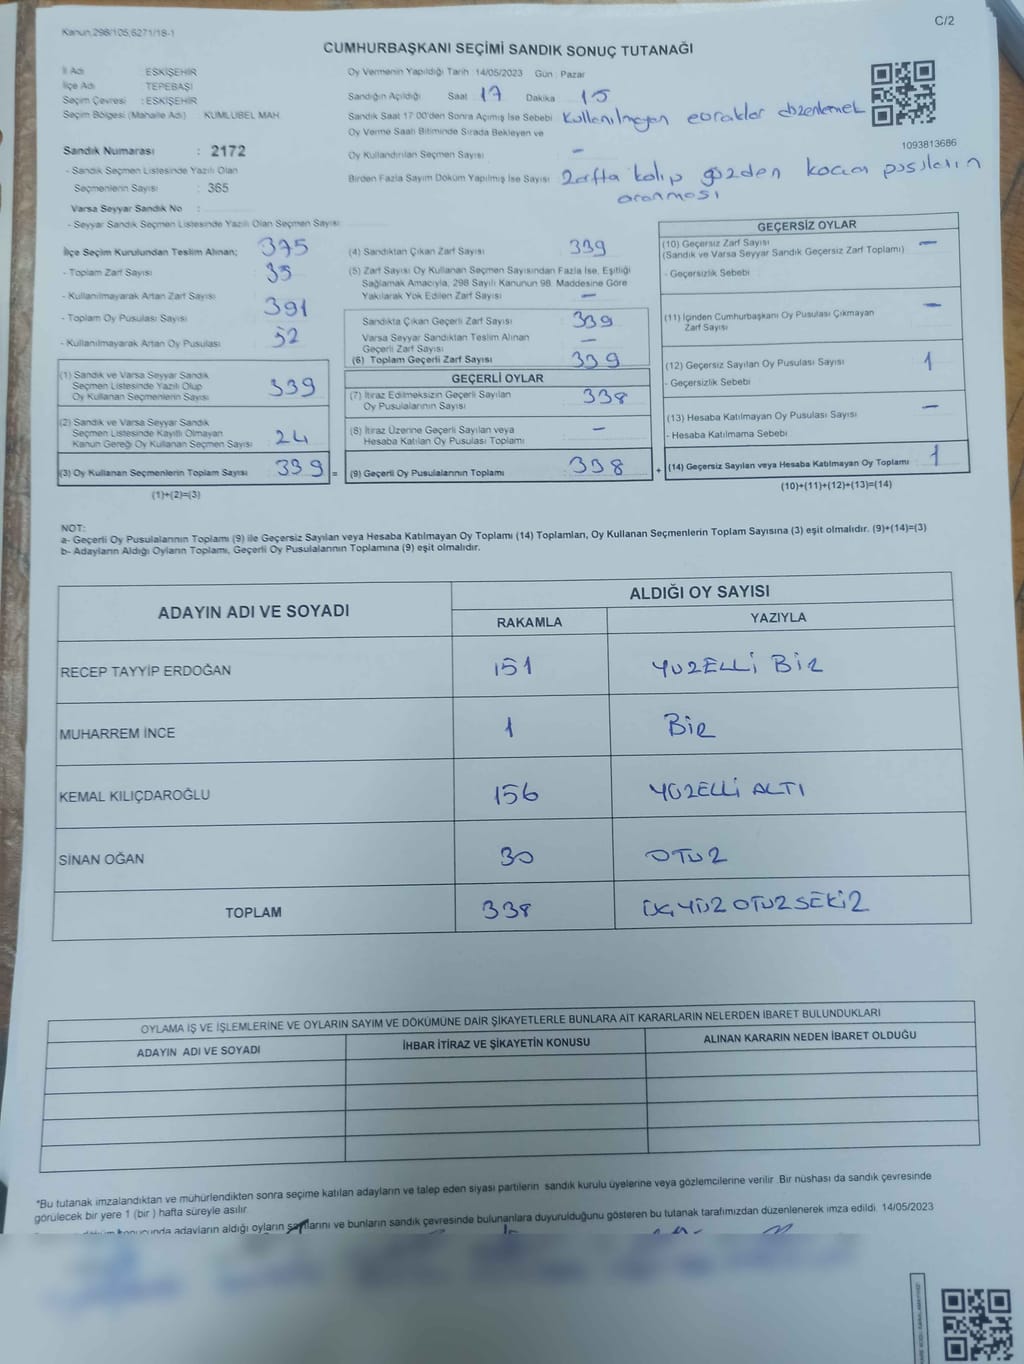 C/2
Kanun,298/105,6271/18-1
CUMHURBAŞKANI SEÇİMİ SANDIK SONUÇ TUTANAĞI
İl Adı : ESKİŞEHİR
İlçe Adı : TEPEBAŞI
Seçim Çevresi : ESKİŞEHİR
Seçim Bölgesi (Mahalle Adı) KUMLUBEL MAH
Sandık Numarası : 2172
- Sandık Seçmen Listesinde Yazılı Olan
Seçmenlerin Sayısı : 365
Varsa Seyyar Sandık No :
- Seyyar Sandık Seçmen Listesinde Yazılı Olan Seçmen Sayısı
Oy Vermenin Yapıldığı Tarih 14/05/2023 Gün : Pazar
Sandığın Açıldığı Saat 17 Dakika 15
Sandık Saat 17:00'den Sonra Açımış İse Sebebi Kullanılmayan evraklar düzenlemek
Oy Verme Saati Bitiminde Sırada Bekleyen ve
Oy Kullandırılan Seçmen Sayısı –
Birden Fazla Sayım Döküm Yapılmış İse Sayısı Zarfta kalıp gözden kaçan pusuların
aranması
1093813686
İlçe Seçim Kurulundan Teslim Alınan; 375
- Toplam Zarf Sayısı 35
- Kullanılmayarak Artan Zarf Sayısı 391
- Toplam Oy Pusulası Sayısı 52
- Kullanılmayarak Artan Oy Pusulası
(1) Sandık ve Varsa Seyyar Sandık
Seçmen Listesinde Yazılı Olup
Oy Kullanan Seçmenlerin Sayısı 339
(2) Sandık ve Varsa Seyyar Sandık
Seçmen Listesinde Kayıtlı Olmayan
Kanun Gereği Oy Kullanan Seçmen Sayısı 24
(3) Oy Kullanan Seçmenlerin Toplam Sayısı 339 =
(1)+(2)=(3)
(4) Sandıktan Çıkan Zarf Sayısı 339
(5) Zarf Sayısı Oy Kullanan Seçmen Sayısından Fazla İse, Eşitliği
Sağlamak Amacıyla, 298 Sayılı Kanunun 98. Maddesine Göre
Yakılarak Yok Edilen Zarf Sayısı –
Sandıkta Çıkan Geçerli Zarf Sayısı 339
Varsa Seyyar Sandıktan Teslim Alınan
Geçerli Zarf Sayısı –
(6) Toplam Geçerli Zarf Sayısı 339
GEÇERLİ OYLAR
(7) İtiraz Edilmeksizin Geçerli Sayılan
Oy Pusulalarının Sayısı 338
(8) İtiraz Üzerine Geçerli Sayılan veya
Hesaba Katılan Oy Pusulası Toplamı –
(9) Geçerli Oy Pusulalarının Toplamı 338 +
GEÇERSİZ OYLAR
(10) Geçersiz Zarf Sayısı –
(Sandık ve Varsa Seyyar Sandık Geçersiz Zarf Toplamı)
- Geçersizlik Sebebi
(11) İçinden Cumhurbaşkanı Oy Pusulası Çıkmayan
Zarf Sayısı –
(12) Geçersiz Sayılan Oy Pusulası Sayısı 1
- Geçersizlik Sebebi
(13) Hesaba Katılmayan Oy Pusulası Sayısı –
- Hesaba Katılmama Sebebi
(14) Geçersiz Sayılan veya Hesaba Katılmayan Oy Toplamı 1
(10)+(11)+(12)+(13)=(14)
NOT:
a- Geçerli Oy Pusulalarının Toplamı (9) ile Geçersiz Sayılan veya Hesaba Katılmayan Oy Toplamı (14) Toplamları, Oy Kullanan Seçmenlerin Toplam Sayısına (3) eşit olmalıdır. (9)+(14)=(3)
b- Adayların Aldığı Oyların Toplamı, Geçerli Oy Pusulalarının Toplamına (9) eşit olmalıdır.
ADAYIN ADI VE SOYADI
ALDIĞI OY SAYISI
RAKAMLA YAZIYLA
RECEP TAYYİP ERDOĞAN 151 YÜZELLİ BİR
MUHARREM İNCE 1 BİR
KEMAL KILIÇDAROĞLU 156 YÜZELLİ ALTI
SİNAN OĞAN 30 OTUZ
TOPLAM 338 ÜÇYÜZ OTUZ SEKİZ
OYLAMA İŞ VE İŞLEMLERİNE VE OYLARIN SAYIM VE DÖKÜMÜNE DAİR ŞİKAYETLERLE BUNLARA AİT KARARLARIN NELERDEN İBARET BULUNDUKLARI
ADAYIN ADI VE SOYADI İHBAR İTİRAZ VE ŞİKAYETİN KONUSU ALINAN KARARIN NEDEN İBARET OLDUĞU
*Bu tutanak imzalandıktan ve mühürlendikten sonra seçime katılan adayların ve talep eden siyasi partilerin sandık kurulu üyelerine veya gözlemcilerine verilir. Bir nüshası da sandık çevresinde
görülecek bir yere 1 (bir ) hafta süreyle asılır.
adayların aldığı oyların sayılarını ve bunların sandık çevresinde bulunanlara duyurulduğunu gösteren bu tutanak tarafımızdan düzenlenerek imza edildi. 14/05/2023